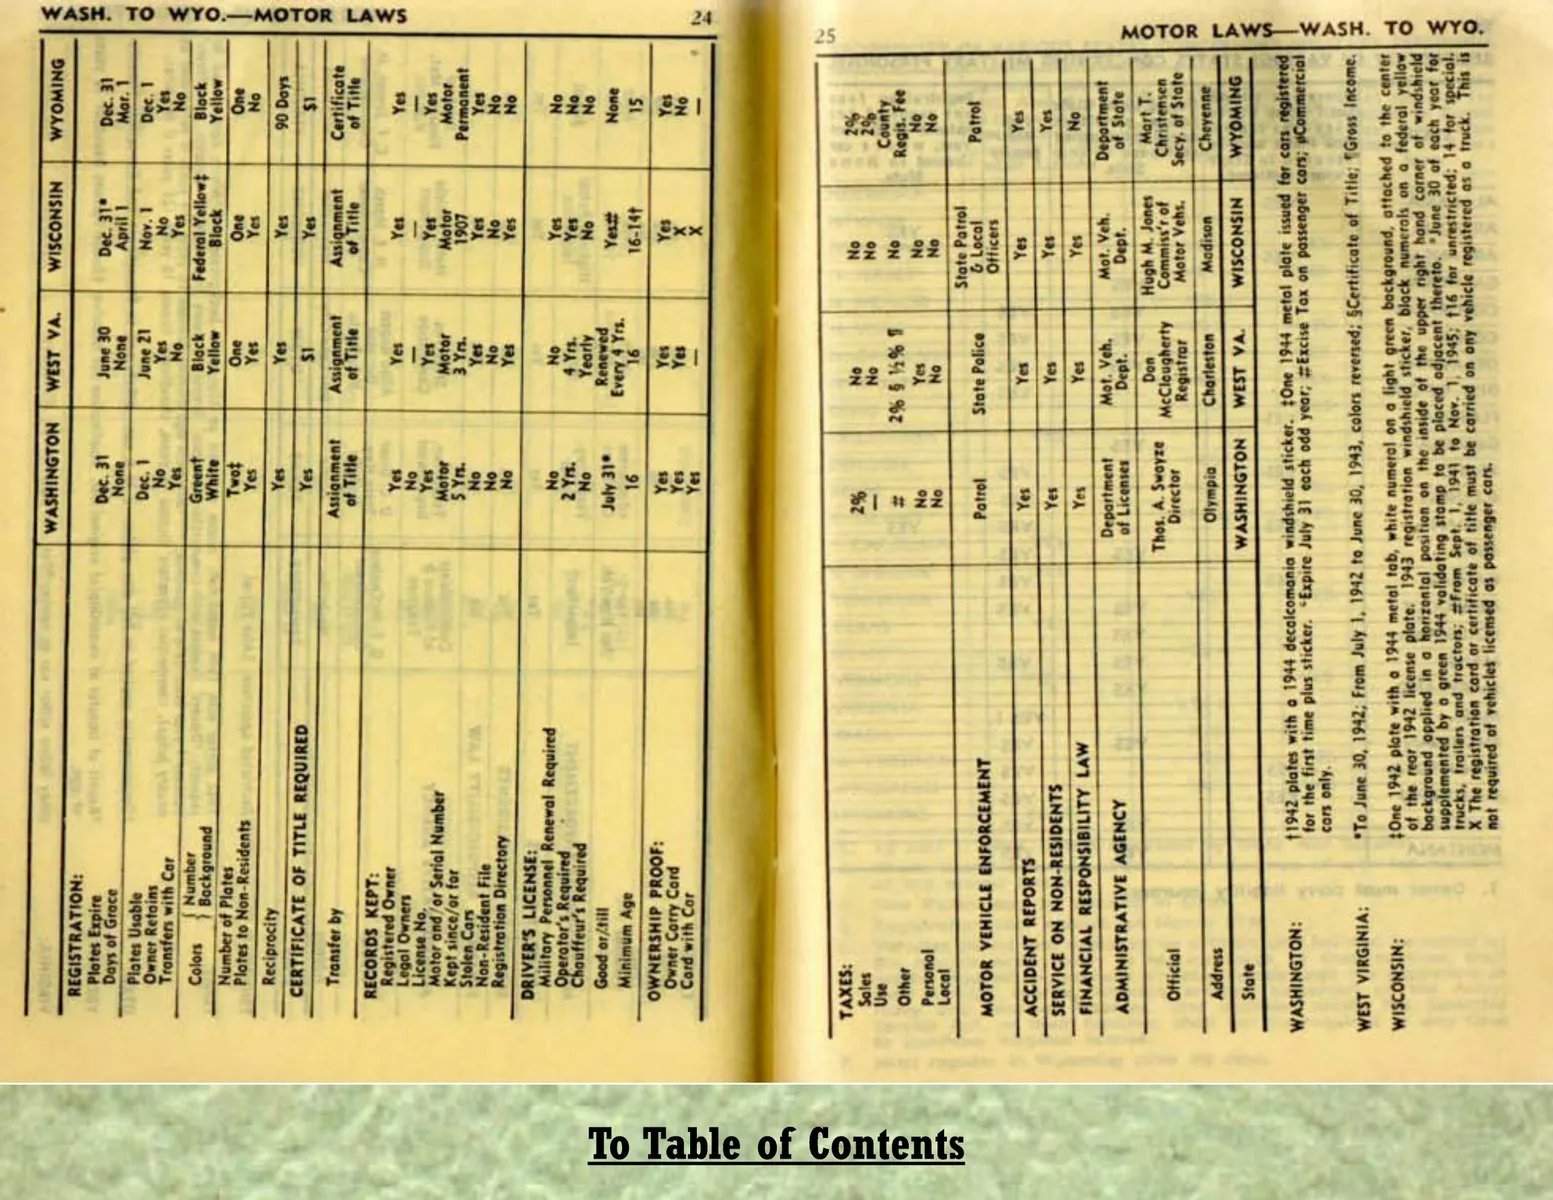 WASH. TO WYO.—MOTOR LAWS 24
WASHINGTON WEST VA. WISCONSIN WYOMING
REGISTRATION:
Plates Expire Dec. 31 June 30 Dec. 31* Dec. 31
Days of Grace None None April 1 Mar. 1
Plates Usable Dec. 1 June 21 Nov. 1 Dec. 1
Owner Retains No Yes No Yes
Transfers with Car Yes No Yes No
Colors { Number Green† Black Federal Yellow‡ Black
} Background White Yellow Black Yellow
Number of Plates Two‡ One One One
Plates to Non-Residents Yes Yes Yes No
Reciprocity Yes Yes Yes 90 Days
CERTIFICATE OF TITLE REQUIRED Yes $1 Yes $1
Transfer by Assignment of Title Assignment of Title Assignment of Title Certificate of Title
RECORDS KEPT:
Registered Owner Yes Yes Yes Yes
Legal Owners No — — —
License No. Yes Yes Yes Yes
Motor and/or Serial Number Motor Motor Motor Motor
Kept since/or for 5 Yrs. 3 Yrs. 1907 Permanent
Stolen Cars No Yes Yes Yes
Non-Resident File No No No No
Registration Directory No Yes Yes No
DRIVER'S LICENSE:
Military Personnel Renewal Required No No Yes No
Operator's Required 2 Yrs. 4 Yrs. Yes No
Chauffeur's Required No Yearly No No
Good or/till July 31* Renewed Every 4 Yrs. Yes# None
Minimum Age 16 16 16-14† 15
OWNERSHIP PROOF:
Owner Carry Card Yes Yes Yes Yes
Card with Car Yes Yes X No
Yes — X —
25 MOTOR LAWS—WASH. TO WYO.
TAXES:
Sales 2% No No 2%
Use — No No 2%
Other # 2% § ½% ¶ No County Regis. Fee
Personal No Yes No No
Local No No No No
MOTOR VEHICLE ENFORCEMENT Patrol State Police State Patrol & Local Officers Patrol
ACCIDENT REPORTS Yes Yes Yes Yes
SERVICE ON NON-RESIDENTS Yes Yes Yes Yes
FINANCIAL RESPONSIBILITY LAW Yes Yes Yes No
ADMINISTRATIVE AGENCY Department of Licenses Mot. Veh. Dept. Mot. Veh. Dept. Department of State
Official Thos. A. Swayze Director Don McClaugherty Registrar Hugh M. Jones Commiss'r of Motor Vehs. Mart T. Christensen Secy. of State
Address Olympia Charleston Madison Cheyenne
State WASHINGTON WEST VA. WISCONSIN WYOMING
WASHINGTON: †1942 plates with a 1944 decalcomania windshield sticker. ‡One 1944 metal plate issued for cars registered
for the first time plus sticker. *Expire July 31 each odd year; #Excise Tax on passenger cars; Commercial
cars only.
WEST VIRGINIA: *To June 30, 1942; From July 1, 1942 to June 30, 1943, colors reversed; §Certificate of Title; ¶Gross Income.
WISCONSIN: ‡One 1942 plate with a 1944 metal tab, white numeral on a light green background, attached to the center
of the rear 1942 license plate. 1943 registration windshield sticker, black numerals on a federal yellow
background applied in a horizontal position on the inside of the upper right hand corner of windshield
supplemented by a green 1944 validating stamp to be placed adjacent thereto. *June 30 of each year for
trucks, trailers and tractors; #From Sept. 1, 1941 to Nov. 1, 1945; †16 for unrestricted; 14 for special.
X The registration card or certificate of title must be carried on any vehicle registered as a truck. This is
not required of vehicles licensed as passenger cars.
To Table of Contents